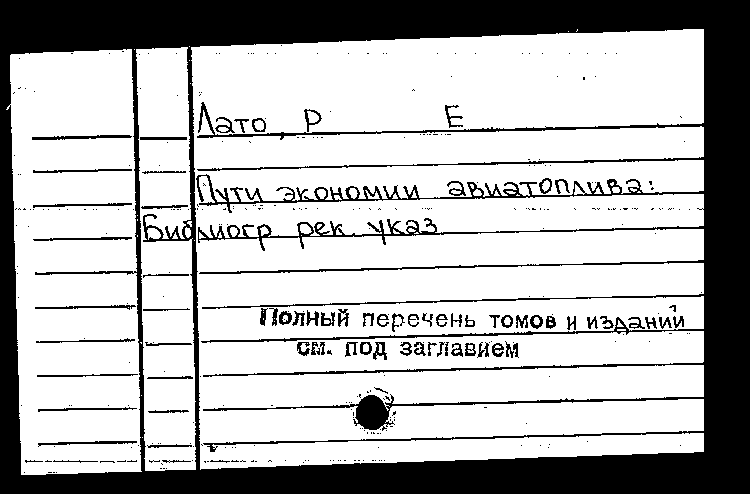 Лато, Р Е
Пути экономии авиатоплива:
Библиогр рек. указ
Полный перечень томов и изданий
см. под заглавием